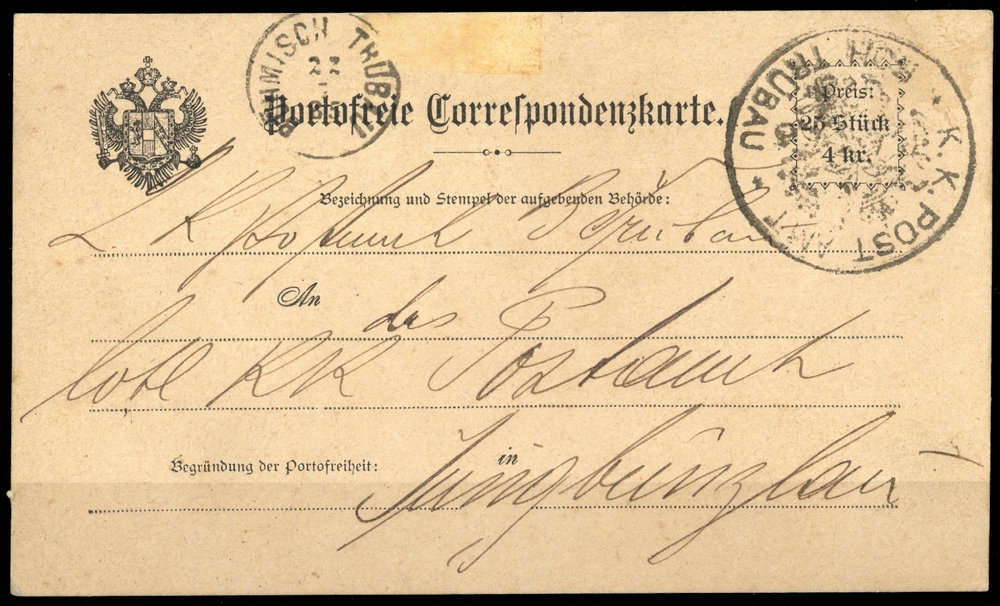 BÖHMISCH TRÜBAU
Portofreie Correspondenzkarte.
Preis:
25 Stück
4 kr.
K. K. POST AMT
TRÜBAU
Bezeichnung und Stempel der aufgebenden Behörde:
An das
löbl KK Postamt
Begründung der Portofreiheit:
in
Jungbunzlau